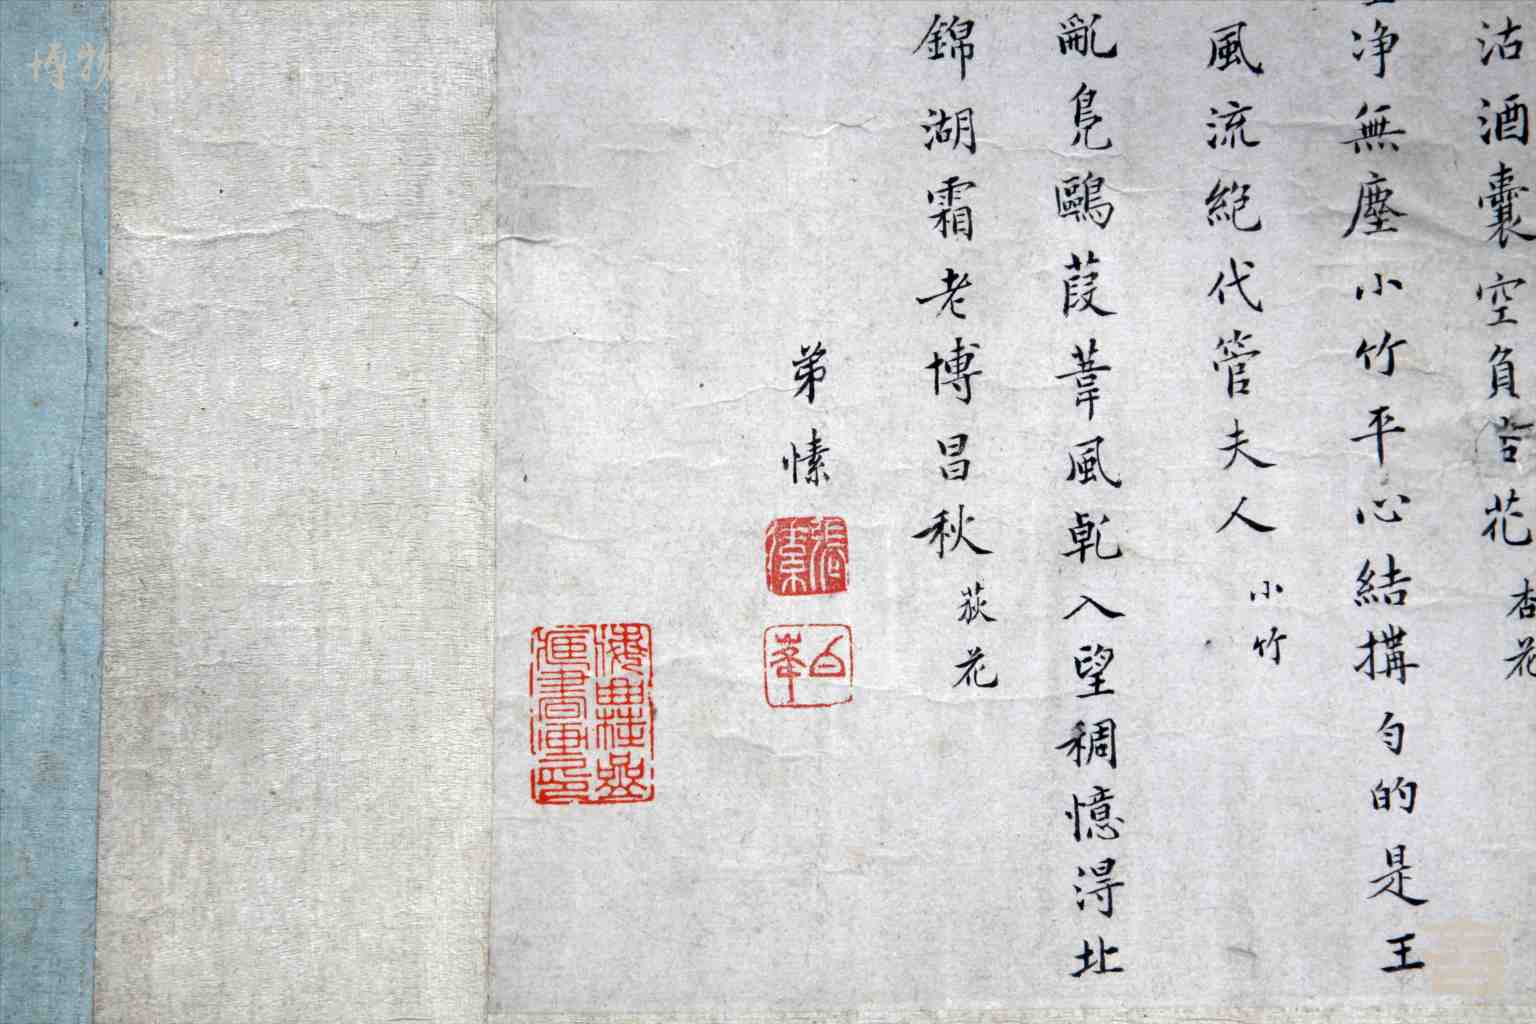 沽酒囊空負杏花 杏花
净無塵小竹平心結搆勻的是王
風流絕代管夫人 小竹
亂鳧鷗葭葦風乾入望稠憶得北
錦湖霜老博昌秋 荻花
弟愫
張愫
白華
書畫印
博物